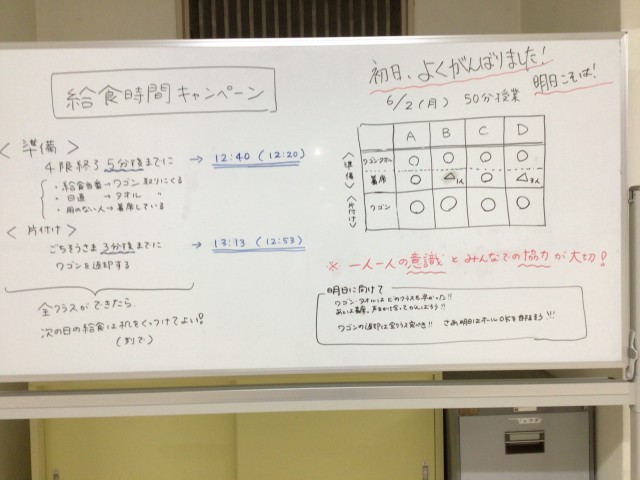 給食時間キャンペーン
<準備>
4限終了5分後までに → 12:40 (12:20)
・給食当番→ワゴン取りにくる
・日直→タオル 〃
・用のない人→着席している
<片付け>
ごちそうさま3分後までに → 13:13 (12:53)
ワゴンを返却する
全クラスができたら
次の日の給食は机をくっつけてよい!
(列で)
初日、よくがんばりました!
明日こそは!
6/2(月) 50分授業
A B C D
<準備>
ワゴンタオル ○ ○ ○ ○
着席 ○ △1人 ○ △3人
<片付け>
ワゴン ○ ○ ○ ○
※ 一人一人の意識とみんなでの協力が大切!
明日に向けて
ワゴン・タオルはどのクラスも早かった!!
あとは着席、声をかけ合ってがんばろう!!
ワゴンの返却は全クラス
さあ明日はオールOKを目指そう!!!